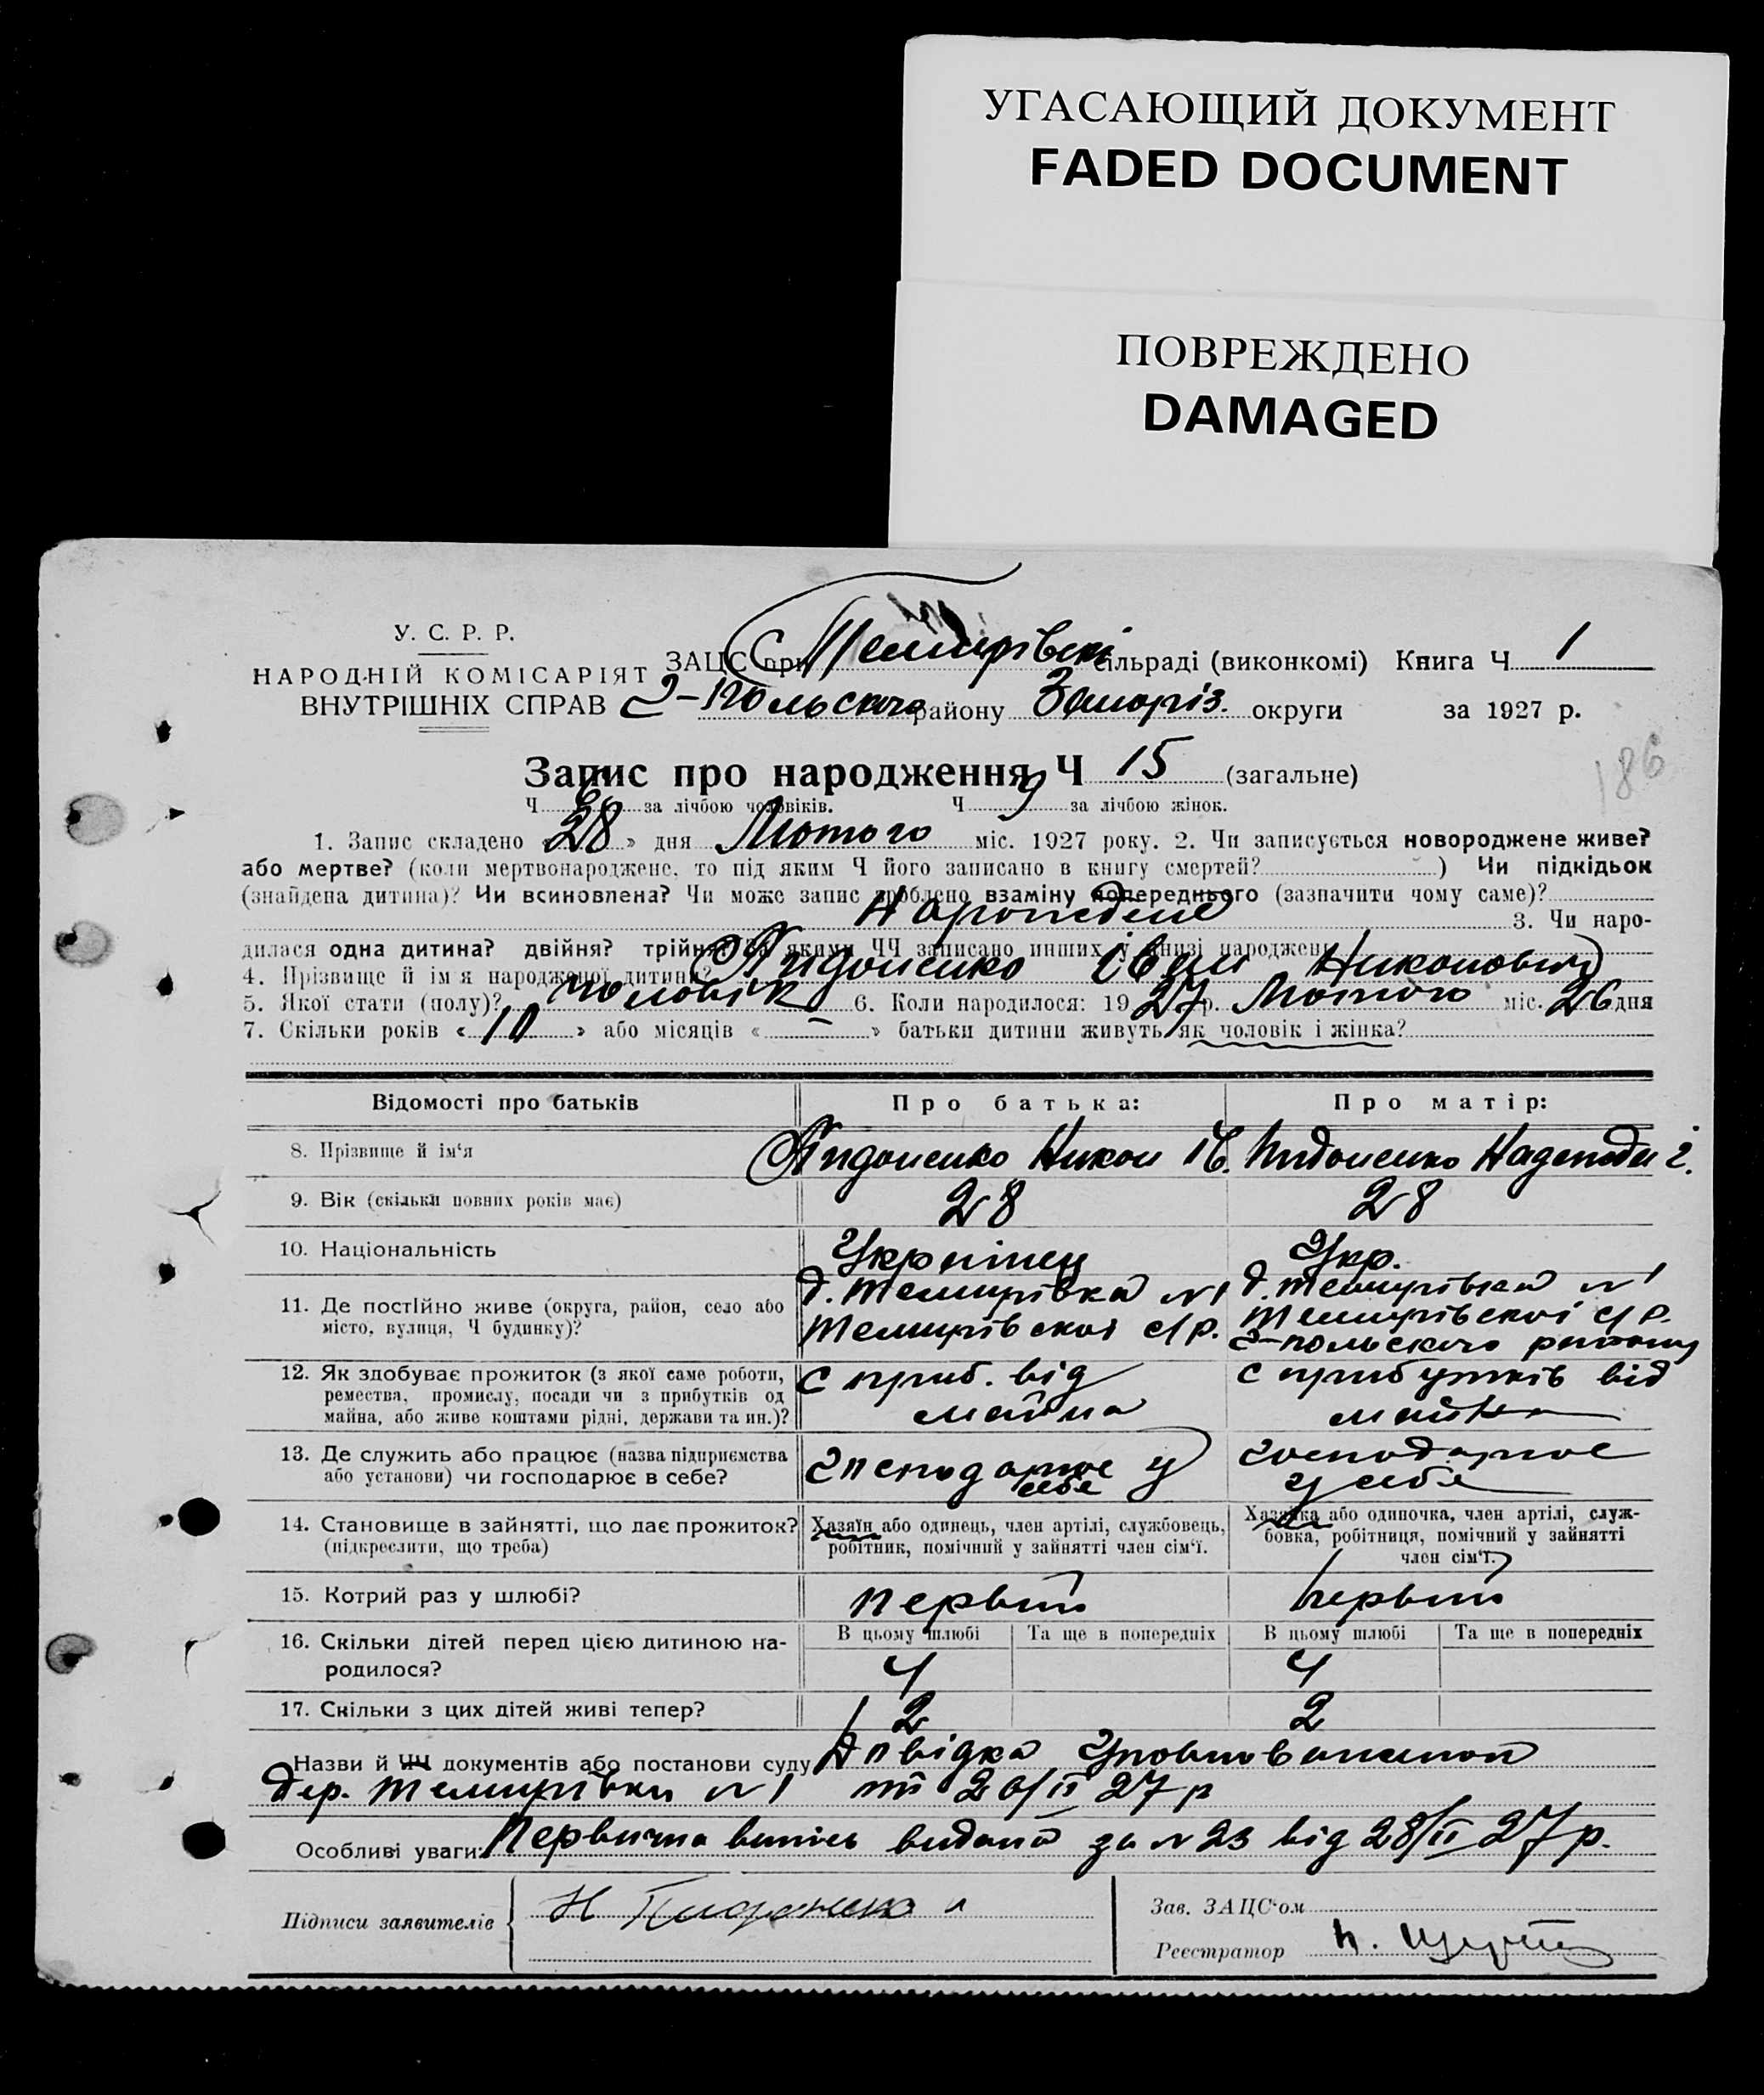 УГАСАЮЩИЙ ДОКУМЕНТ
FADED DOCUMENT
ПОВРЕЖДЕНО
DAMAGED
У. С. Р. Р.
НАРОДНІЙ КОМІСАРІЯТ
ВНУТРІШНІХ СПРАВ
ЗАЦС при Темирівськ сільраді (виконкомі) Книга Ч 1
Г-Польского району Запоріз. округи за 1927 р.
186
Запис про народження Ч 15 (загальне)
Ч за лічбою чоловіків. Ч 9 за лічбою жінок.
1. Запис складено «28» дня Лютого міс. 1927 року. 2. Чи записується новороджене живе?
або мертве? (коли мертвонароджене, то під яким Ч його записано в книгу смертей? ) Чи підкідьок
(знайдена дитина)? Чи всиновлена? Чи може запис зроблено взаміну попереднього (зазначити чому саме)?
Нарождене 3. Чи наро-
дилася одна дитина? двійня? трійня? За якими ЧЧ записано инших у книзі народжень
4. Прізвище й ім'я народженої дитини? Пидоненко Іван Никонович
5. Якої стати (полу)? Чоловік 6. Коли народилося: 1927 р. Лютого міс. 26 дня
7. Скільки років «10» або місяців «—» батьки дитини живуть як чоловік і жінка?
Відомості про батьків Про батька: Про матір:
8. Прізвище й ім'я Пидоненко Никон Ів. Пидоненко Надежда І.
9. Вік (скільки повних років має) 28 28
10. Національність Українец Укр.
11. Де постійно живе (округа, район, село або місто, вулиця, Ч будинку)?
д. Темирівка №1 Темирівскоі с/р.
д. Темирівка №1 Темирівскоі с/р. Г-польского району
12. Як здобуває прожиток (з якої саме роботи, ремества, промислу, посади чи з прибутків од майна, або живе коштами рідні, держави та ин.)?
с приб. від майна
с прибутків від майна
13. Де служить або працює (назва підприємства або установи) чи господарює в себе?
господарює у себе
господарює у себе
14. Становище в зайнятті, що дає прожиток? (підкреслити, що треба)
Хазяїн або одинець, член артілі, службовець, робітник, помічний у зайнятті член сім'ї.
Хазяйка або одиночка, член артілі, служ-бовка, робітниця, помічний у зайнятті член сім'ї.
15. Котрий раз у шлюбі? первый первый
16. Скільки дітей перед цією дитиною на-родилося?
В цьому шлюбі Та ще в попередніх В цьому шлюбі Та ще в попередніх
4 4
17. Скільки з цих дітей живі тепер? 2 2
Назви й ЧЧ документів або постанови суду Довідка Уповноваженой
дер. Темирівки №1 27 р
Особливі уваги: Первична випись видана за №23 від 28/ІІ 27 р.
Підписи заявителів Н
Зав. ЗАЦС'ом
Реєстратор